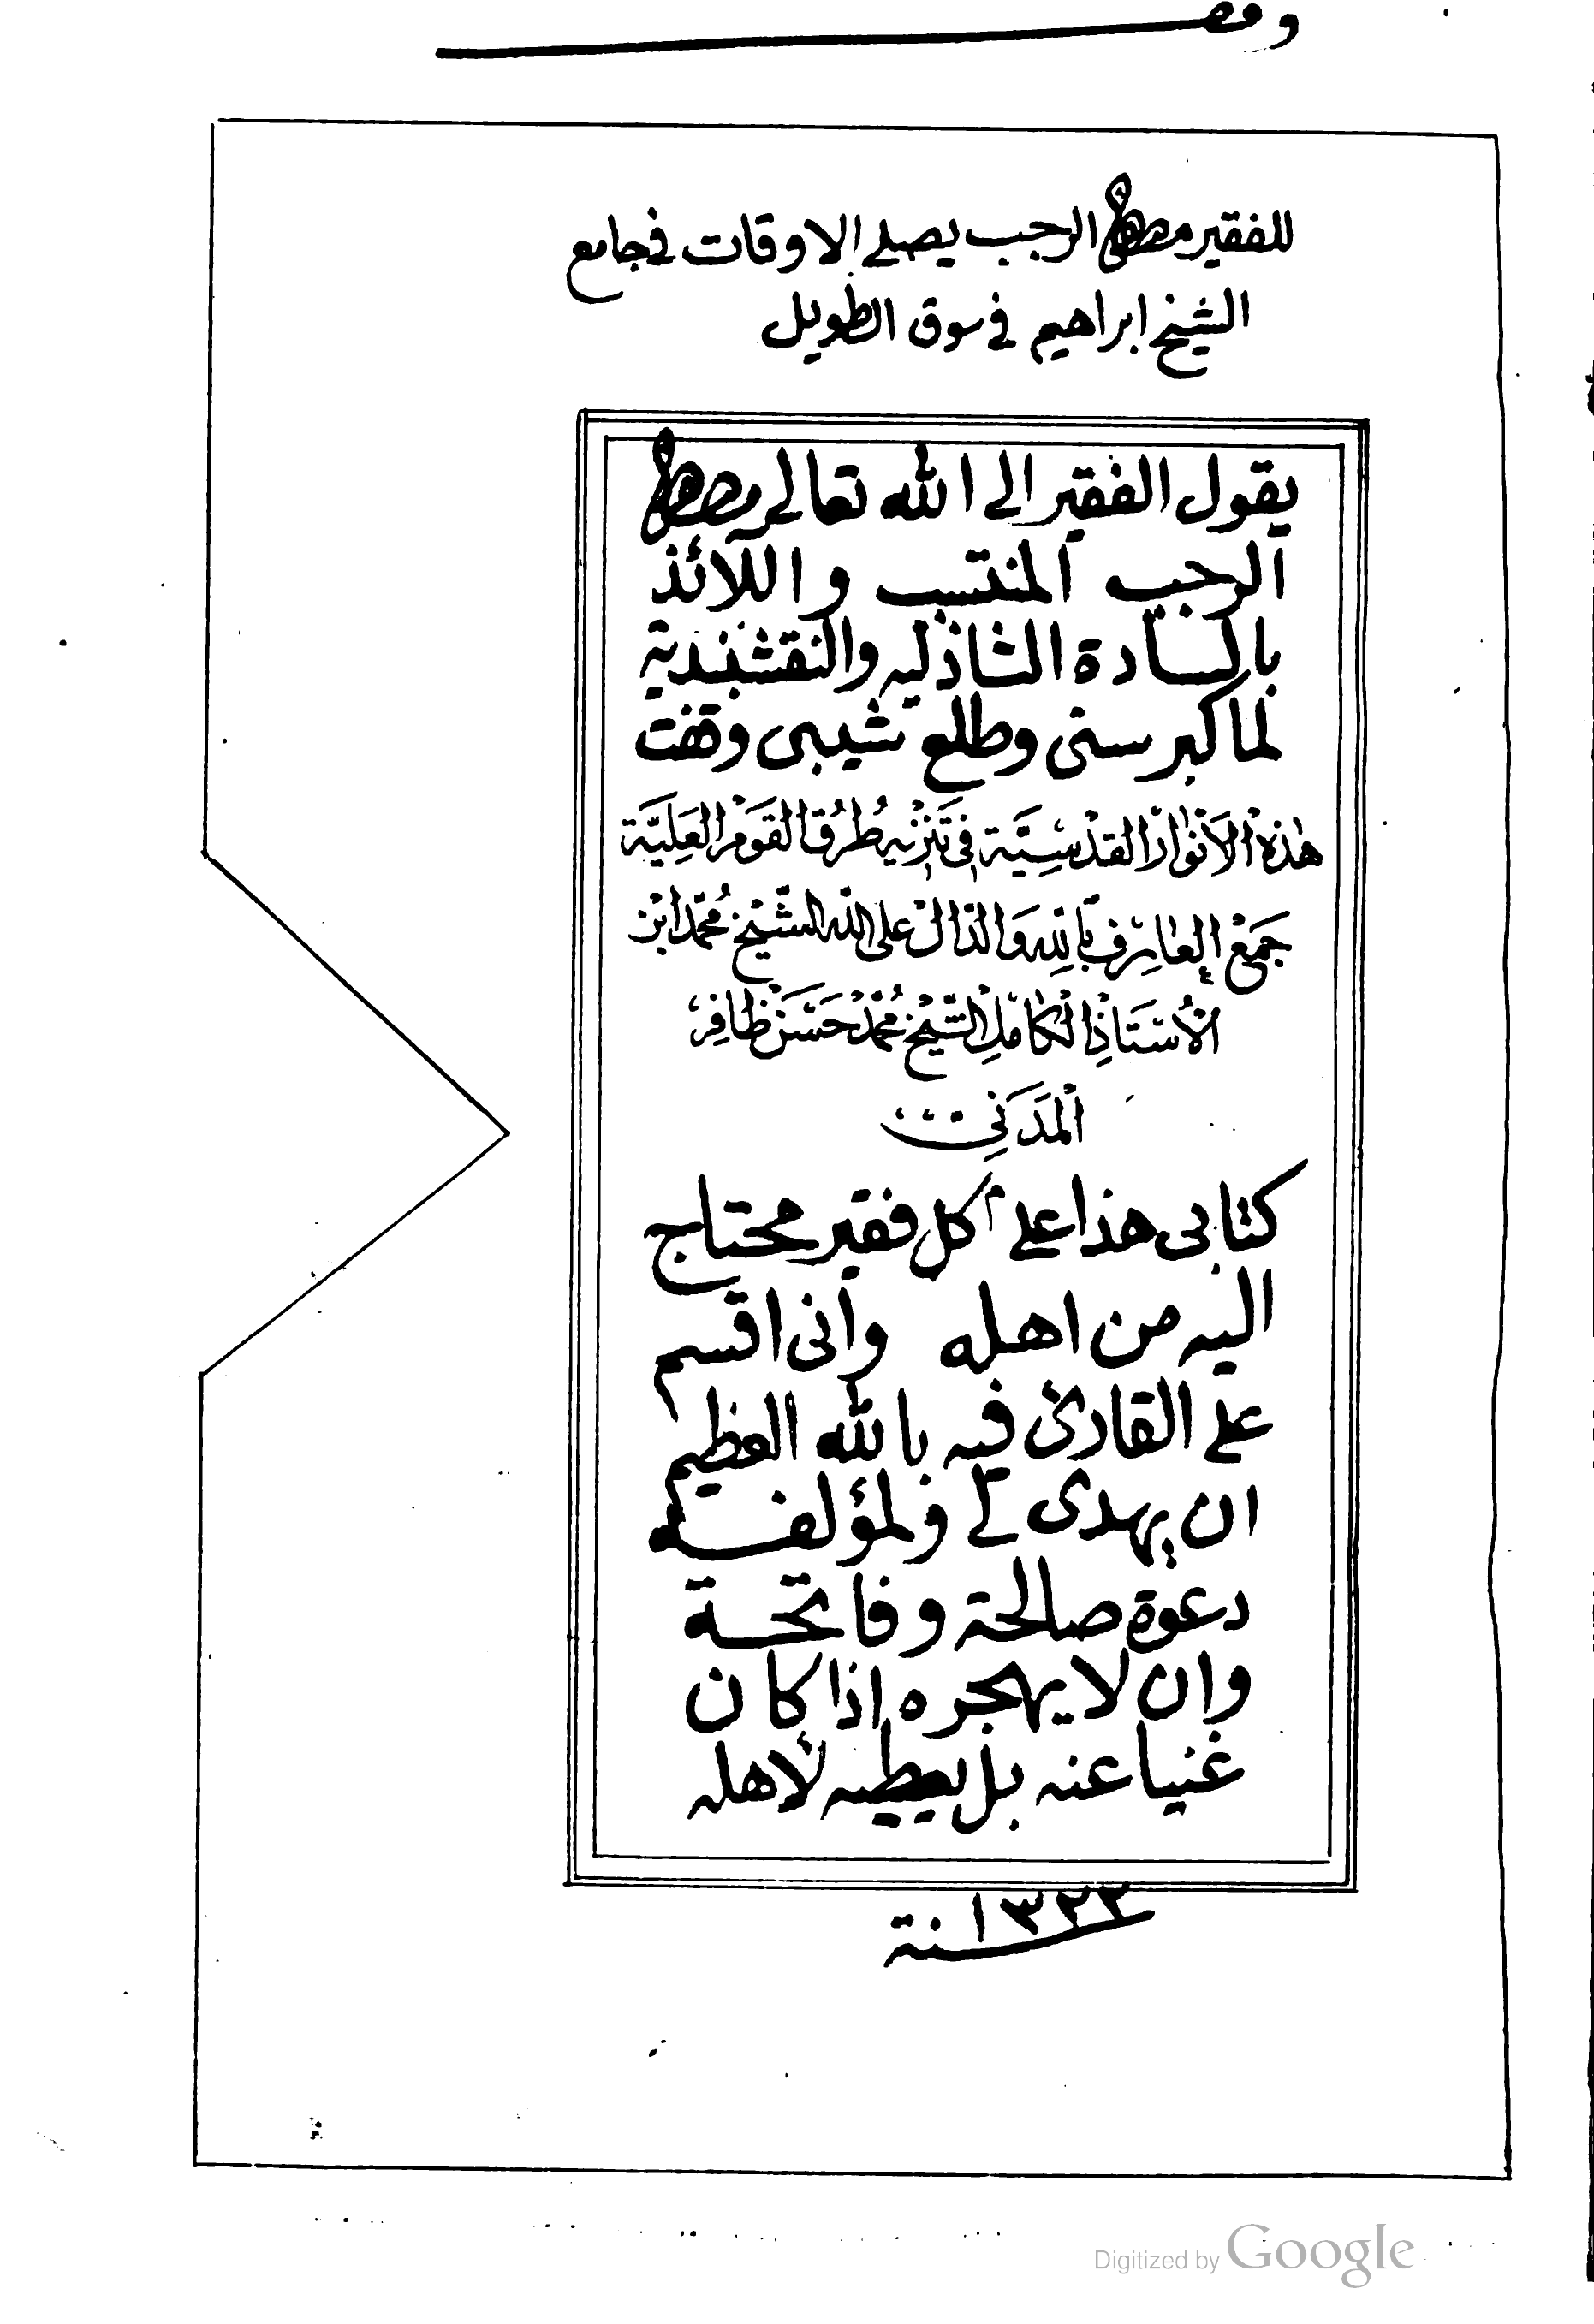 وقف
للفقير مصطفى الرجب يصلي الاوقات في جامع
الشيخ ابراهيم في سوق الطويل
يقول الفقير الى الله تعالى مصطفى
الرجب المنتسب واللائذ
بالسادة الشاذليه والنقشبندية
لما كبر سنى وطلع شيبى وقفت
هٰذِهْ الْاَنْوَارُ القُدْسِيَّة فِى تَنْزِيْهِ طُرُقِ القَوْمِ العَلِيَّة
جَمْعُ العَارِفِ بِاللهِ وَالدَّالْ عَلَى اللهِ الشَّيْخ مُحَمَّد ابْن
الْأُسْتَاذِ الْكَامِلِ الشَّيْخ مُحَمَّدْ حَسَنْ ظَافِرْ
الْمَدَنِي
كتابى هذا على كل فقير محتاج
اليه من اهله وانى اقسم
على القارئ فيه بالله العظيم
ان يهدى لي ولمؤلفه
دعوة صالحة وفاتحة
وان لا يهجره اذا كان
غنيا عنه بل يعطيه لأهله
سنة ١٣٢٣
Digitized by Google